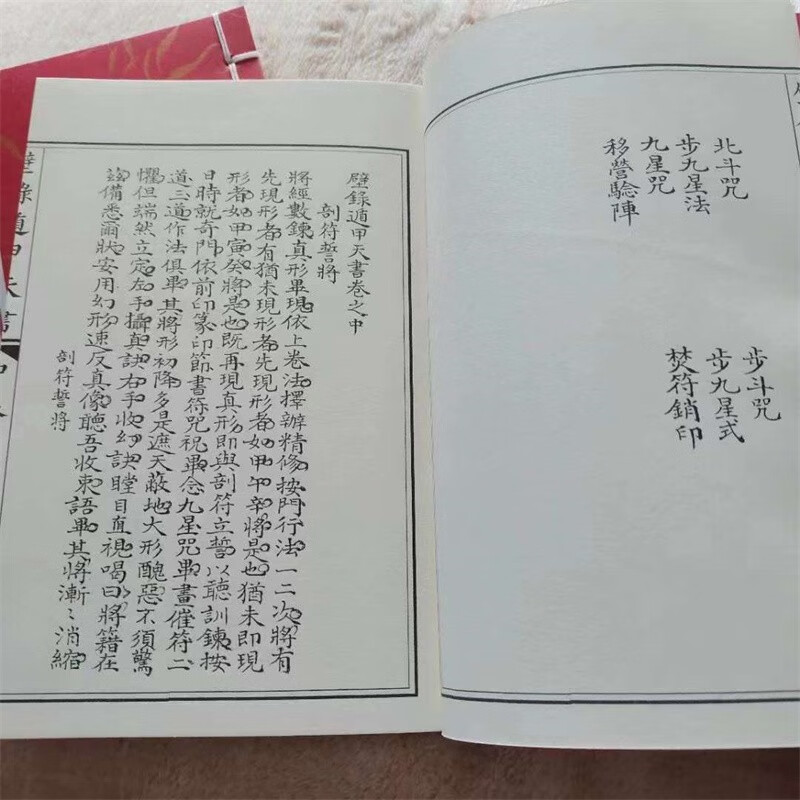 北斗咒
步九星法
九星咒
移營驗陣
步斗咒
步九星式
焚符銷印
壁錄遁甲天書卷之中
剖符誓將
將經數鍊真形畢現依上卷法擇辦精修按門行法一二次將有
先現形者有猶未現形者先現形者如甲午辛將是也猶未即現
形者如甲寅癸將是也既再現真形即與剖符立誓以聽訓鍊按
日時就奇門依前印篆印節書符咒祝畢念九星咒畢畫催符二
道三道作法俱畢其將形初降多是遮天蔽地大形醜惡不須驚
懼但端然立定左手攝真訣右手收幻訣瞠目直視喝曰將籍在
茲備悉爾狀安用幻形速反真像聽吾收束語畢其將漸〻消縮
剖符誓將
壁錄遁甲天書